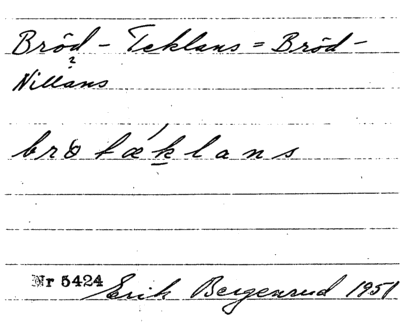 Bröd - Teklans = Bröd -
Nillans
brötæklans
Nr 5424 Erik Bergenrud 1951